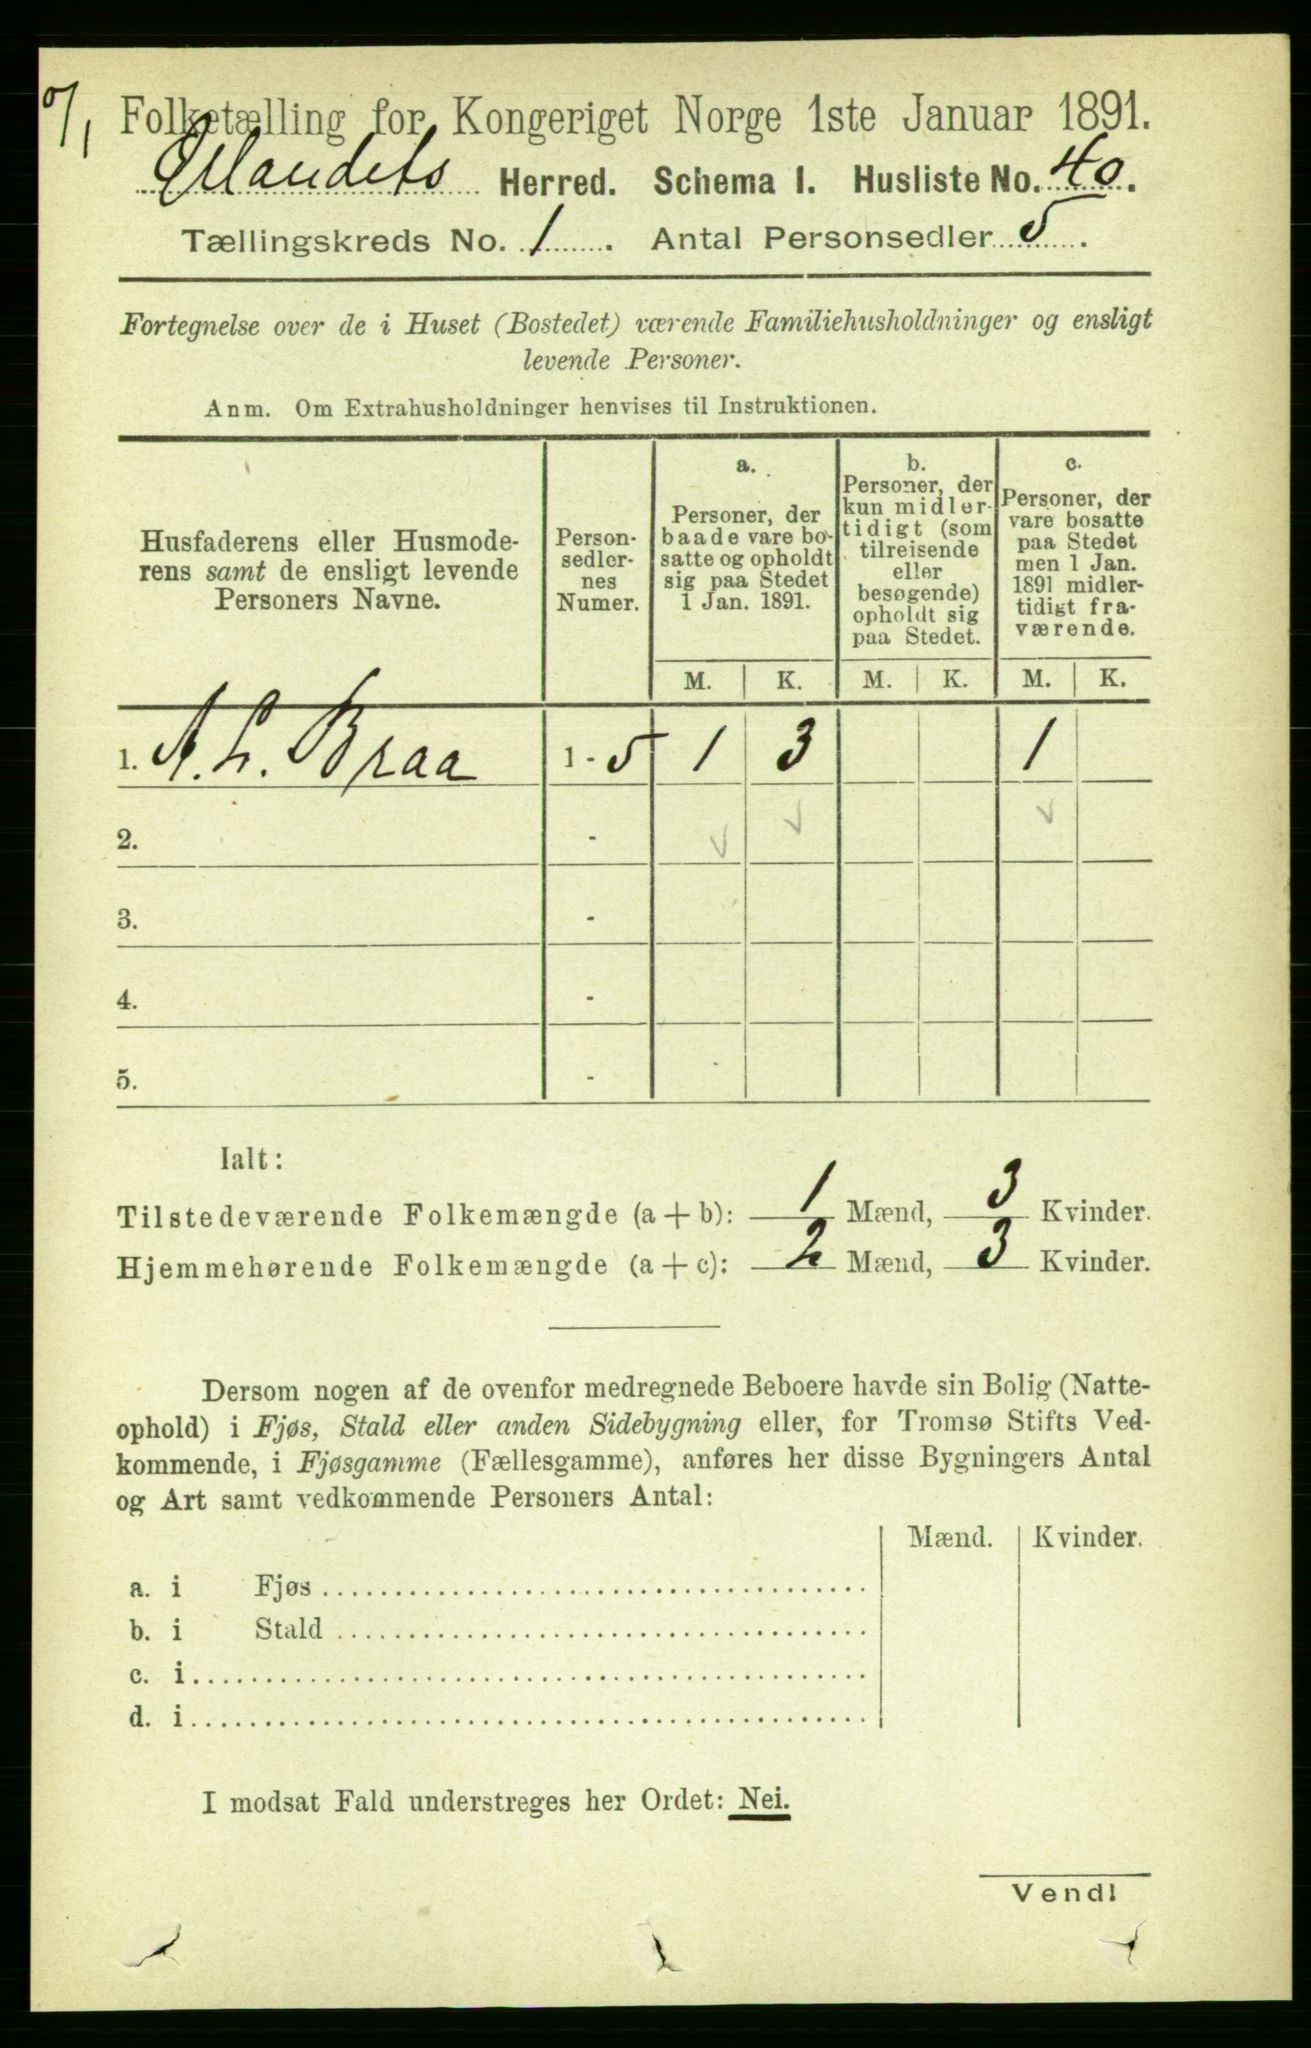 0/1
Folketælling for Kongeriget Norge 1ste Januar 1891.
Ørlandets Herred. Schema I. Husliste No. 40.
Tællingskreds No. 1. Antal Personsedler 5.
Fortegnelse over de i Huset (Bostedet) værende Familiehusholdninger og ensligt
levende Personer.
Anm. Om Extrahusholdninger henvises til Instruktionen.
Husfaderens eller Husmode-
rens samt de ensligt levende
Personers Navne.
Person-
sedler-
nes
Numer.
a.
Personer, der
baade vare bo-
satte og opholdt
sig paa Stedet
1 Jan. 1891.
b.
Personer, der
kun midler-
tidigt (som
tilreisende
eller
besøgende)
opholdt sig
paa Stedet.
c.
Personer, der
vare bosatte
paa Stedet
men 1 Jan.
1891 midler-
tidigt fra-
værende.
M. K. M. K. M. K.
1. A. L. Braa 1 - 5 1 3 1
2. -
3. -
4. -
5. -
Ialt:
Tilstedeværende Folkemængde (a + b): 1 Mænd, 3 Kvinder.
Hjemmehørende Folkemængde (a + c): 2 Mænd, 3 Kvinder.
Dersom nogen af de ovenfor medregnede Beboere havde sin Bolig (Natte-
ophold) i Fjøs, Stald eller anden Sidebygning eller, for Tromsø Stifts Ved-
kommende, i Fjøsgamme (Fællesgamme), anføres her disse Bygningers Antal
og Art samt vedkommende Personers Antal:
Mænd. Kvinder.
a. i Fjøs
b. i Stald
c. i
d. i
I modsat Fald understreges her Ordet: Nei.
Vend!